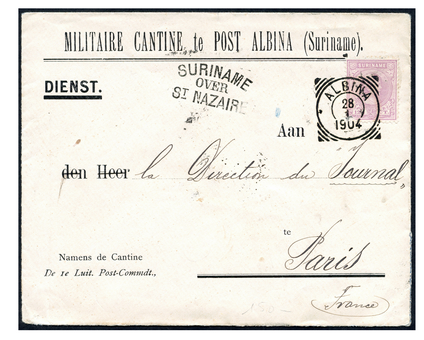 MILITAIRE CANTINE te POST ALBINA (Suriname).
SURINAME
OVER
ST NAZAIRE
DIENST.
SURINAME
ALBINA
28
1904
Aan
den Heer la Direction du Journal
te
Paris
Namens de Cantine
De 1e Luit. Post-Commdt.,
France